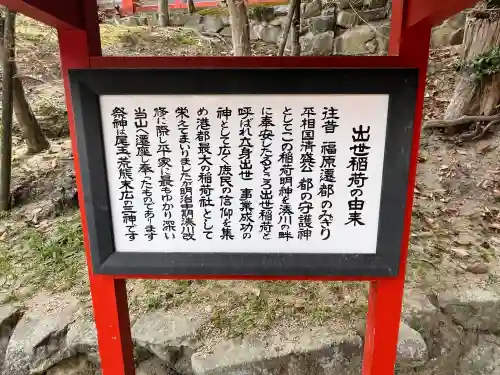 出世稲荷の由来
往昔 福原遷都のみぎり
平相国清盛公都の守護神
としてこの稲荷明神を湊川の畔
に奉安したるところ出世稲荷と
呼ばれ立身出世 事業成功の
神として広く庶民の信仰を集
め港都最大の稲荷社として
栄えてまいりましたが明治中期湊川改
修に際し平家に最もゆかり深い
当山へ遷座し奉ったものであります
祭神は尾玉 荒熊 末広の三神です